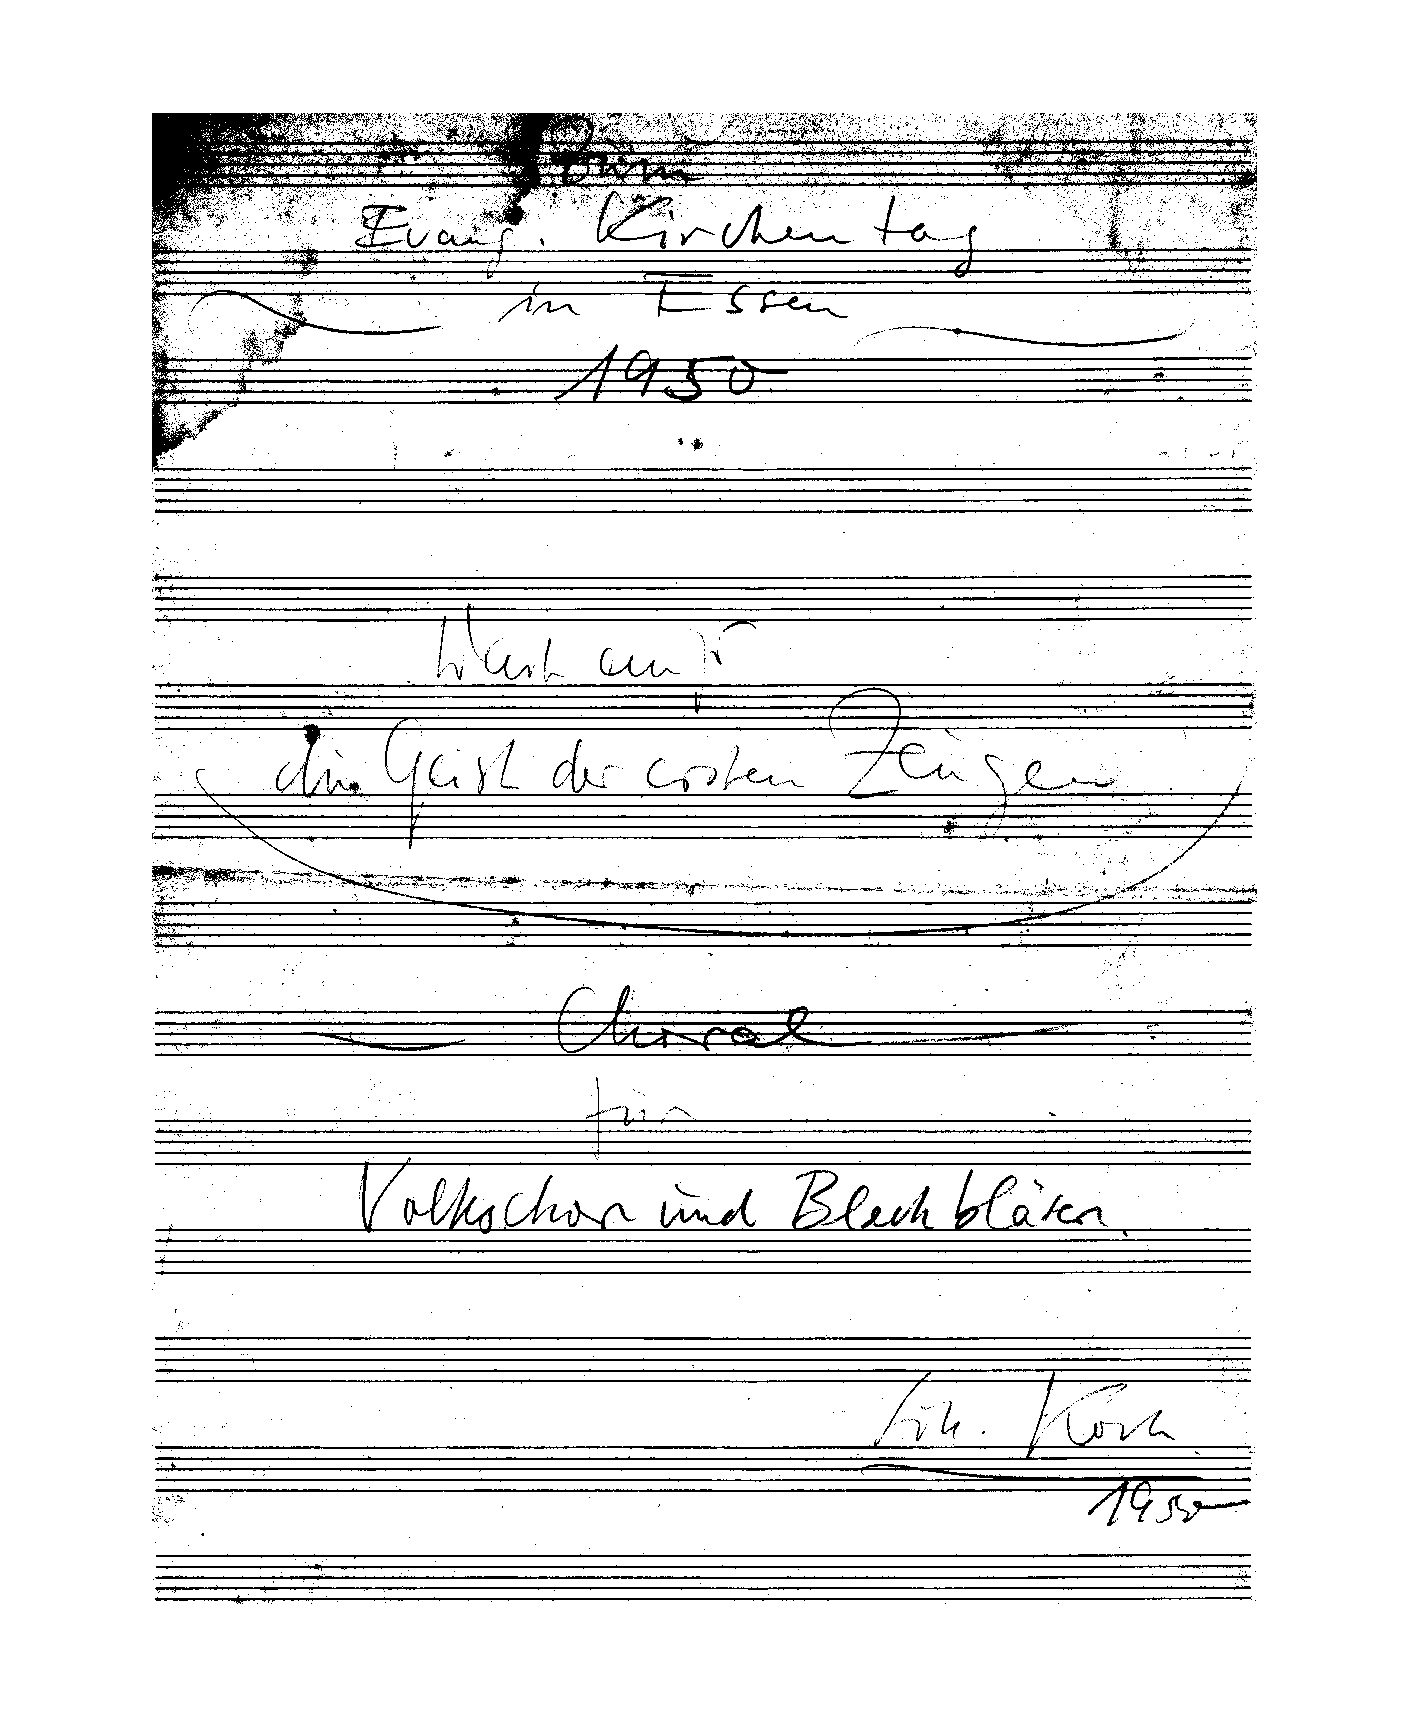 Zum
Evang. Kirchentag
in Essen
1950
Wach auf
du Geist der ersten Zeugen
Choral
für
Volkschor und Blechbläser.
Joh. Koch
1950